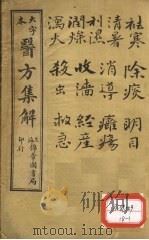 祛寒 除痰 明目
清暑 消導 癰瘍
利濕 收澀 經產
潤燥 殺虫 救急
瀉火
大字本
醫方集解
上海錦章圖書局印行